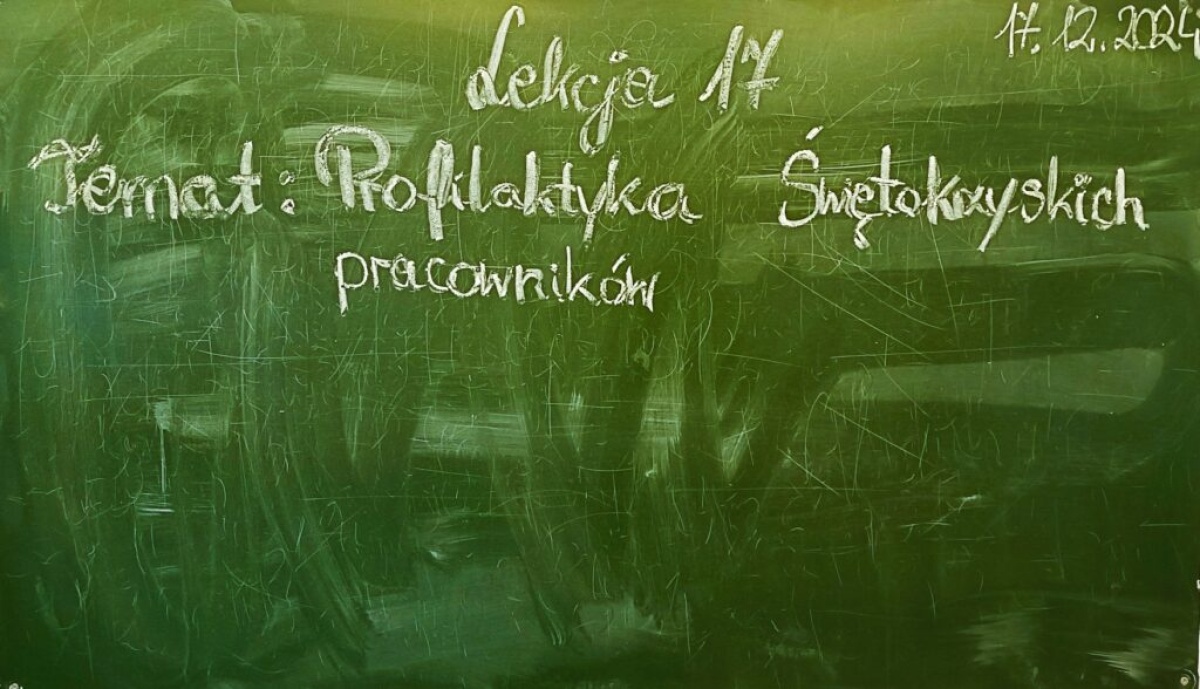 17.12.2024
Lekcja 17
Temat: Profilaktyka Świętokrzyskich
pracowników